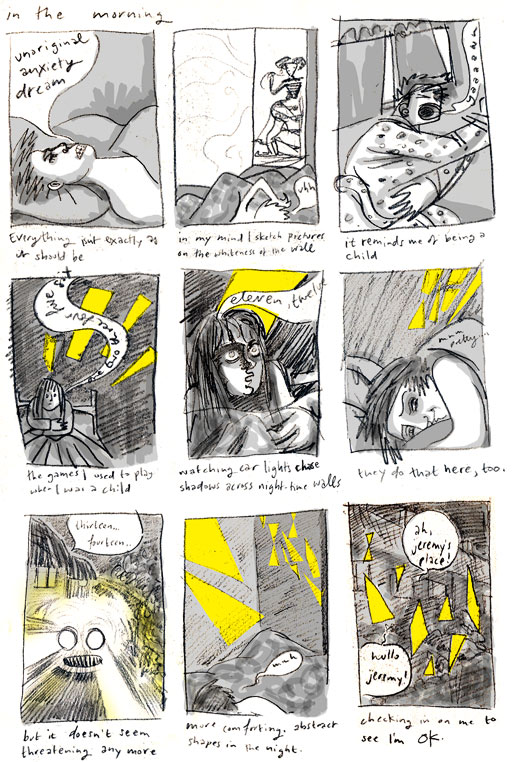 in the morning
unoriginal
anxiety
dream
Everything isn't exactly as
it should be
uhh
in my mind I sketch pictures
on the whiteness of the wall
it reminds me of being a
child
one two three four five six
the games I used to play
when I was a child
eleven, twelve
watching car lights chase
shadows across night-time walls
mmm
pretty
they do that here, too.
thirteen...
fourteen..
but it doesn't seem
threatening any more
mmh
more comforting, abstract
shapes in the night.
ah,
jeremy's
place!
hullo
jeremy!
checking in on me to
see I'm OK.